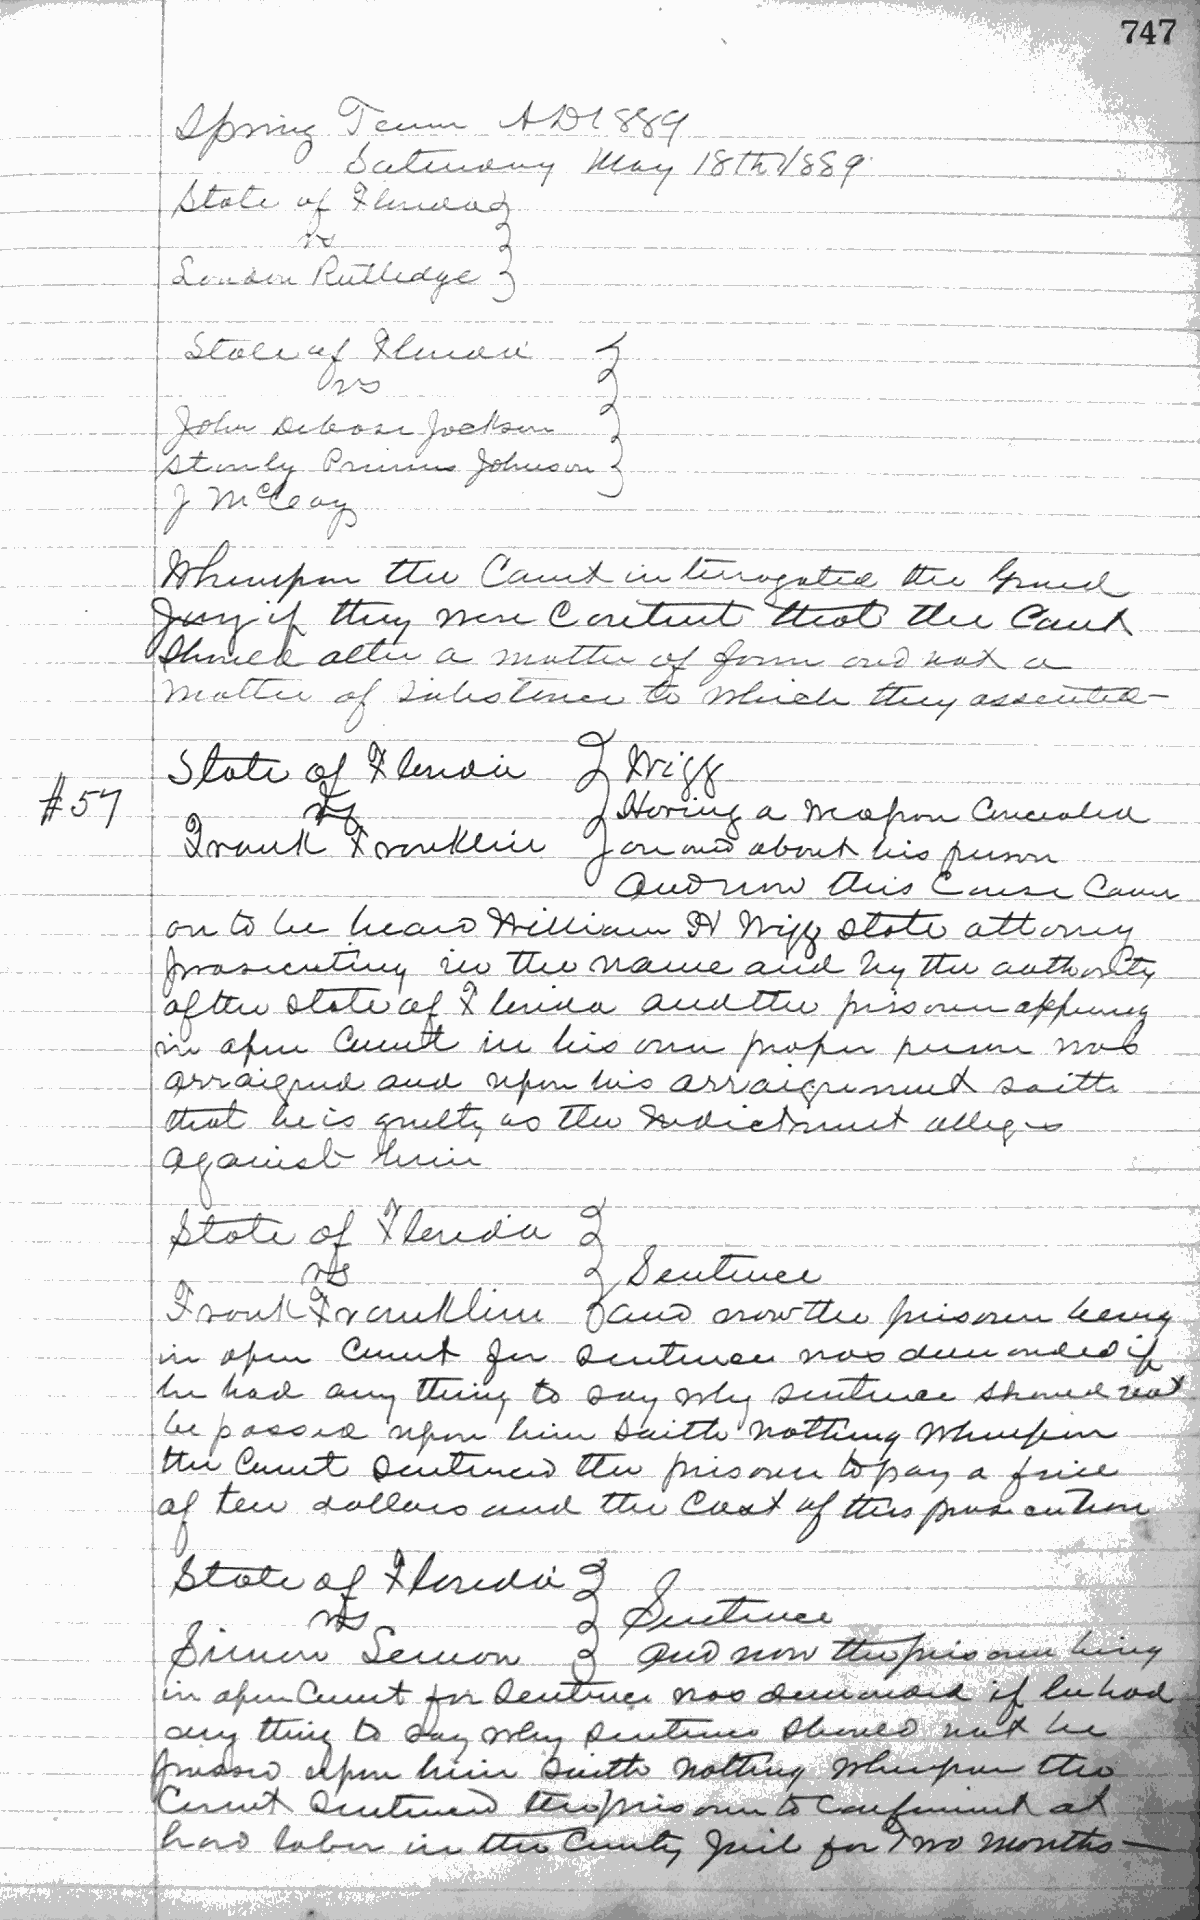 747
Spring Term AD 1889
Saturday May 18th 1889
State of Florida
vs
London Rutledge
State of Florida
vs
John Debose Jackson
Stanly Primus Johnson
J McCoy
Whereupon the Court interrogated the Grand
Jury if they were Content that the Court
Should alter a matter of form and not a
matter of substance to which they assented—
State of Florida Wigg
#57
vs Having a Weapon Concealed
Frank Franklin on and about his person
And now this Cause Came
on to be heard William H Wigg State attorney
prosecuting in the name and by the authority
of the State of Florida and the prisoner appearing
in open Court in his own proper person was
arraigned and upon his arraignment saith
that he is guilty as the Indictment alleges
against him
State of Florida
vs Sentence
Frank Franklin and now the prisoner being
in open Court for sentence was demanded if
he had any thing to say why sentence should not
be passed upon him Saith nothing Whereupon
the Court Sentenced the prisoner to pay a fine
of ten dollars and the Cost of this prosecution
State of Florida
vs Sentence
Simon And now the prisoner being
in open Court for Sentence was demanded if he had
any thing to say why Sentence Should not be
passed upon him Saith nothing Whereupon the
Court Sentenced the prisoner to Confinement at
hard labor in the County Jail for Two months—